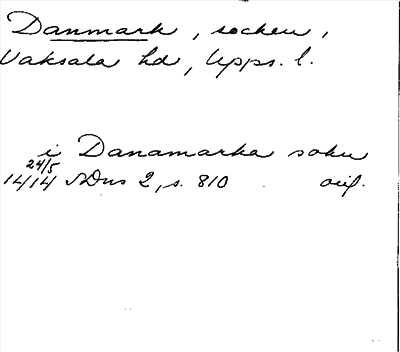 Danmark, socken,
Vaksala hd, Upps. l.
i Danamarka sokn
24/5
14/14 SDns 2, s. 810 orig.